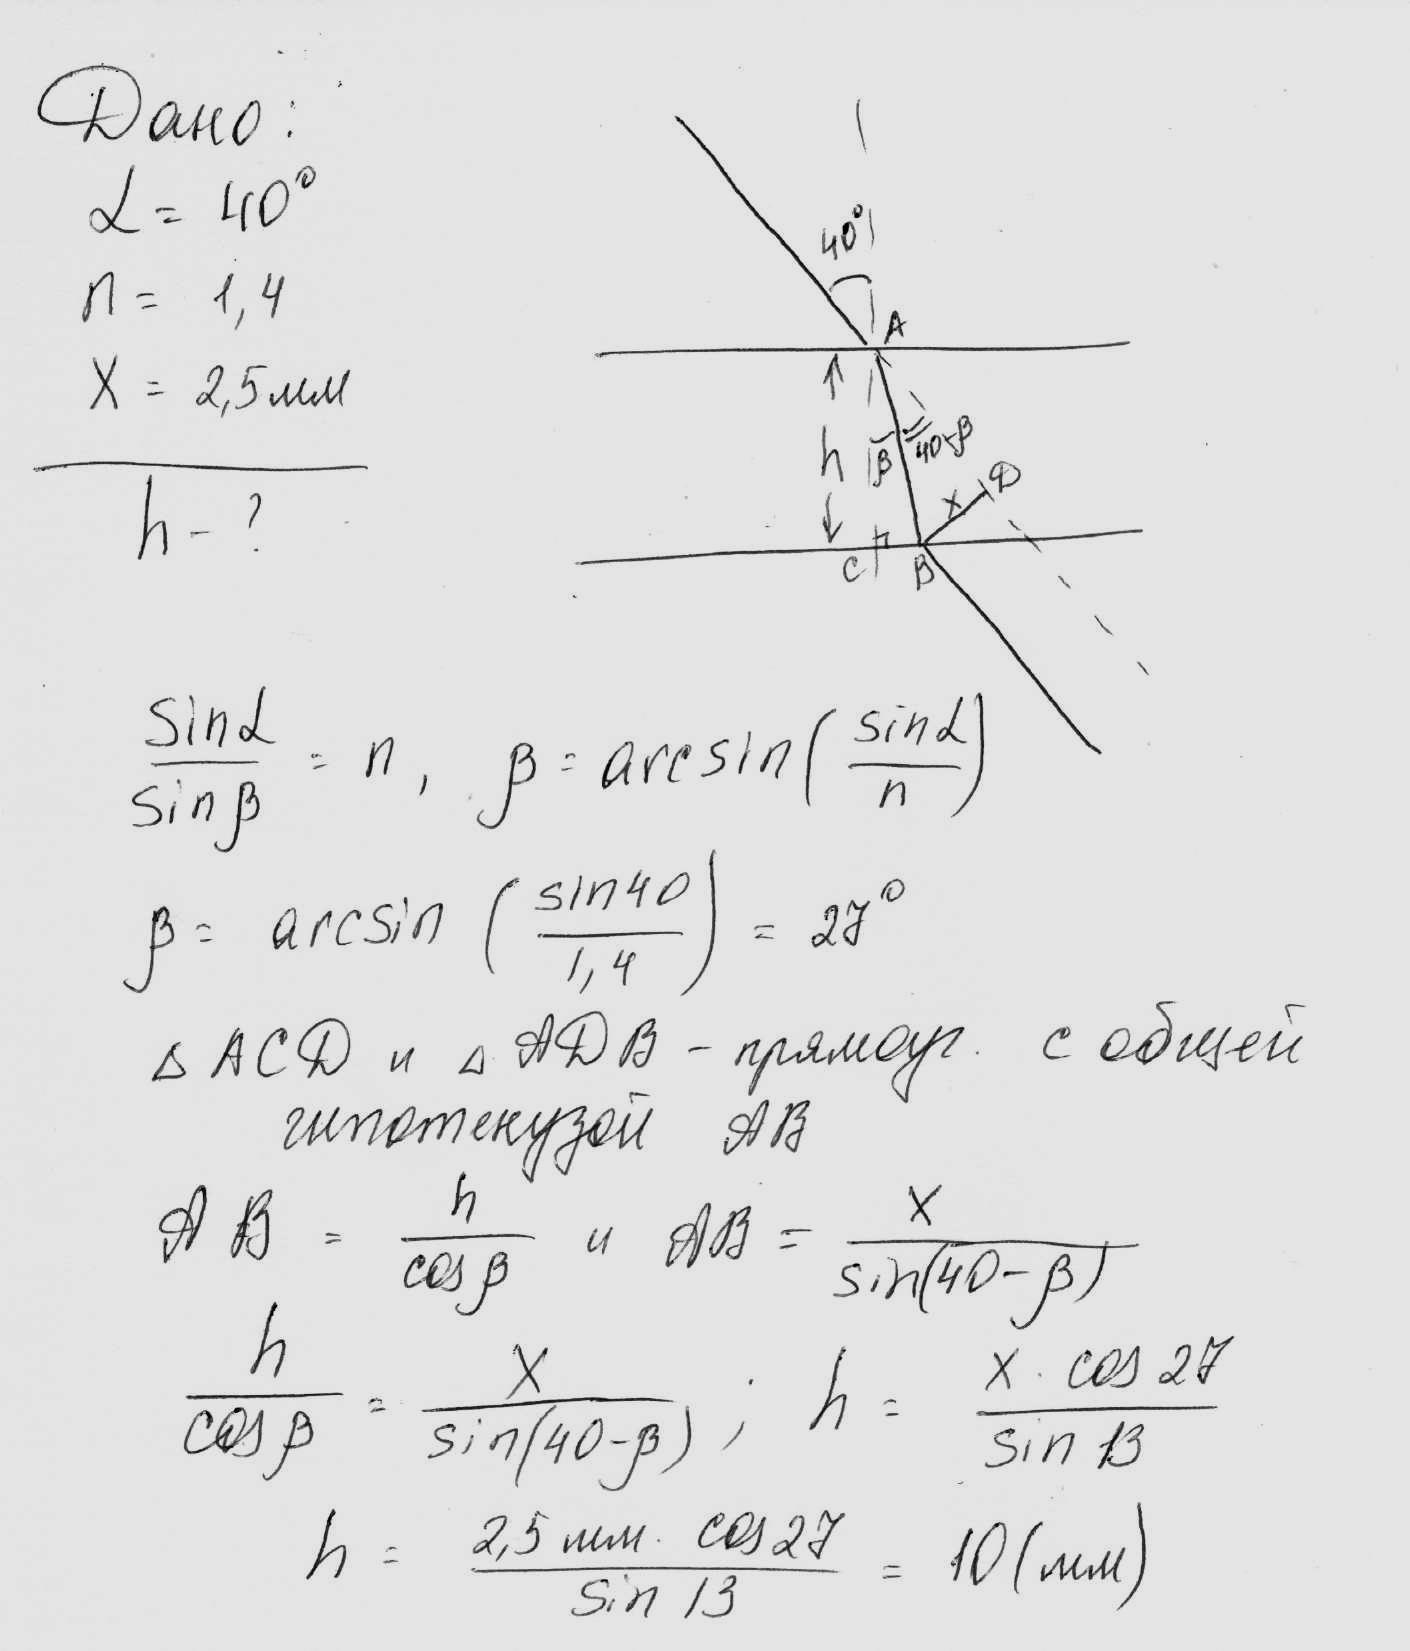 Дано:
α = 40°
n = 1,4
x = 2,5 мм
h - ?
40°
A
h
β
40-β
x
D
C
B
sinα / sinβ = n, β = arcsin(sinα / n)
β = arcsin (sin40 / 1,4) = 27°
△ ACD и △ ADB - прямоуг. с общей
гипотенузой AB
AB = h / cosβ и AB = x / sin(40-β)
h / cosβ = x / sin(40-β) ; h = x · cos 27 / sin 13
h = 2,5 мм · cos27 / sin 13 = 10 (мм)